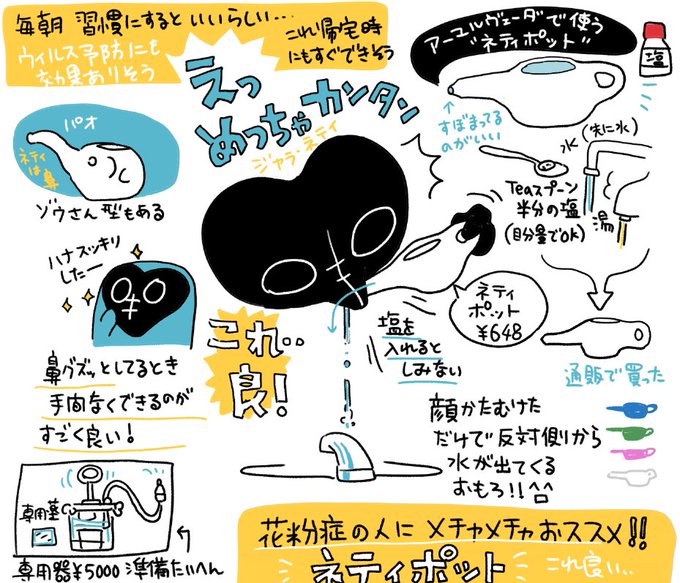 毎朝 習慣にするといいらしい…
ウィルス予防にも
効果ありそう
これ帰宅時
にもすぐできそう
えっ
めっちゃカンタン
ジャラ・ネティ
アーユルヴェーダで使う
"ネティポット"
塩
↑
すぼまってる
のがいい
水 (先に水)
Teaスプーン
半分の塩
(目分量でOK)
湯
パオ
ネティ
は鼻
ゾウさん型もある
ハナスッキリ
したー
ネティ
ポット
¥648
これ‥
良!
塩を
入れると
しみない
通販で買った
鼻グズッとしてるとき
手間なくできるのが
すごく良い!
顔かたむけた
だけで反対側から
水が出てくる
おもろ!!^^
専用塩
専用器¥5000 準備たいへん
花粉症の人にメチャメチャおススメ!!
ネティポット
これ良い…